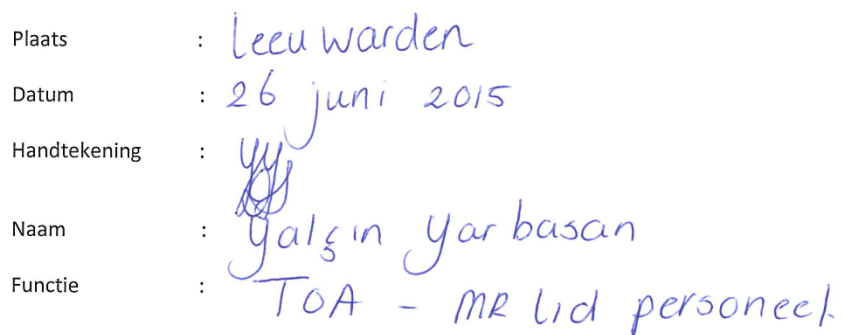 Plaats : Leeuwarden
Datum : 26 juni 2015
Handtekening :
Naam : Yalçın Yarbasan
Functie : TOA - MR lid personeel.